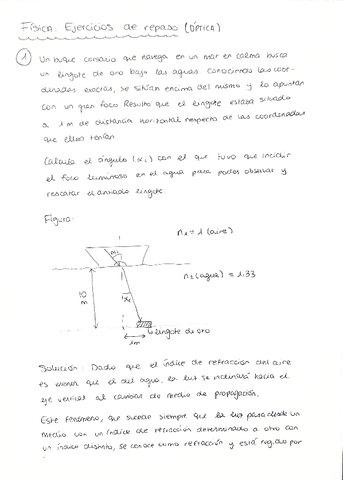 Física: Ejercicios de repaso (ÓPTICA)
① Un buque corsario que navega en un mar en calma busca
un lingote de oro bajo las aguas. Conociendo las coor-
dinadas exactas, se sitúan encima del mismo y lo apuntan
con un gran foco. Resulta que el lingote estaba situado
a 1m de distancia horizontal respecto de las coordenadas
que ellos tenían.
Calcula el ángulo con el que tuvo que incidir
el foco luminoso en el agua para poder observar y
rescatar el ansiado lingote.
Figura:
n₁ = 1 (aire)
n₂ (agua) = 1.33
10 m
Lingote de oro
1m
Solución: Dado que el índice de refracción del aire
es menor que el del agua, la luz se inclinará hacia el
eje vertical al cambiar de medio de propagación.
Este fenómeno, que sucede siempre que la luz pasa desde un
medio con un índice de refracción determinado a otro con
un índice distinto, se conoce como refracción y está regido por